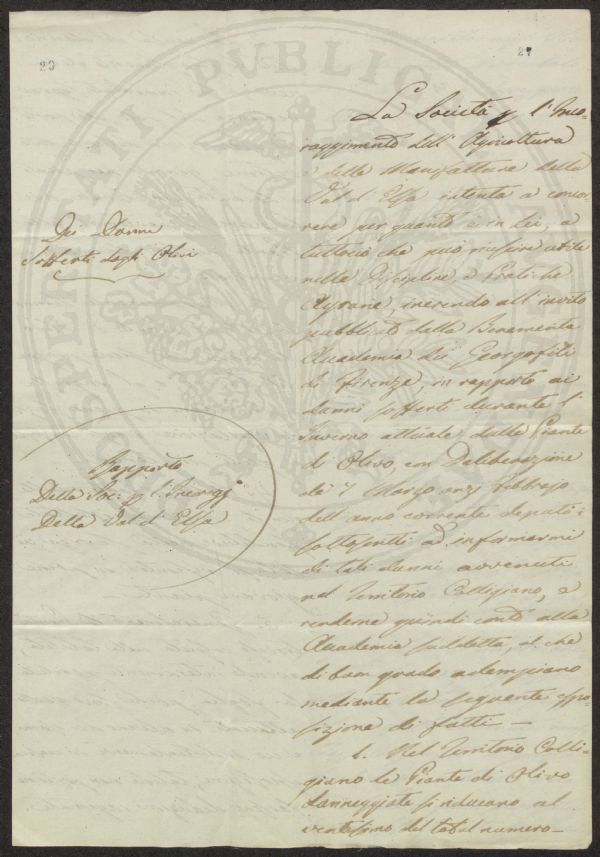 20
27
Dei Danni
Sofferti dagli Olivi
Rapporto
Della Soc: p l'Incoragg.
Della Val d'Elsa
La Società p l'Inco-
raggimento dell'Agricoltura
e delle Manifatture della
Val d'Elsa intenta a concor-
rere per quanto è in Lei, a
tuttociò che può riuscire utile
nelle Discipline, e Pratiche
Agrarie, inerendo all'invito
pubblicato dalla Benemerita
Accademia dei Georgofili
di Firenze, in rapporto ai
danni sofferti durante l'
Inverno attuale dalle Piante
di Olivo, con Deliberazione
de' 7 Marzo anzi Febbrajo
dell'anno corrente deputò
sottoscritti ad informarmi
di tali danni avvenuti
nel Territorio Colligiano, e
renderne quindi conto alla
Accademia suddetta, il che
di buon grado adempiano
mediante la seguente espo-
sizione di fatti —
1. Nel Territorio Colli-
giano le Piante di Olivo
danneggiate si riducano al
ventesimo del total numero —
PVBLICAE
PROSPERITATI